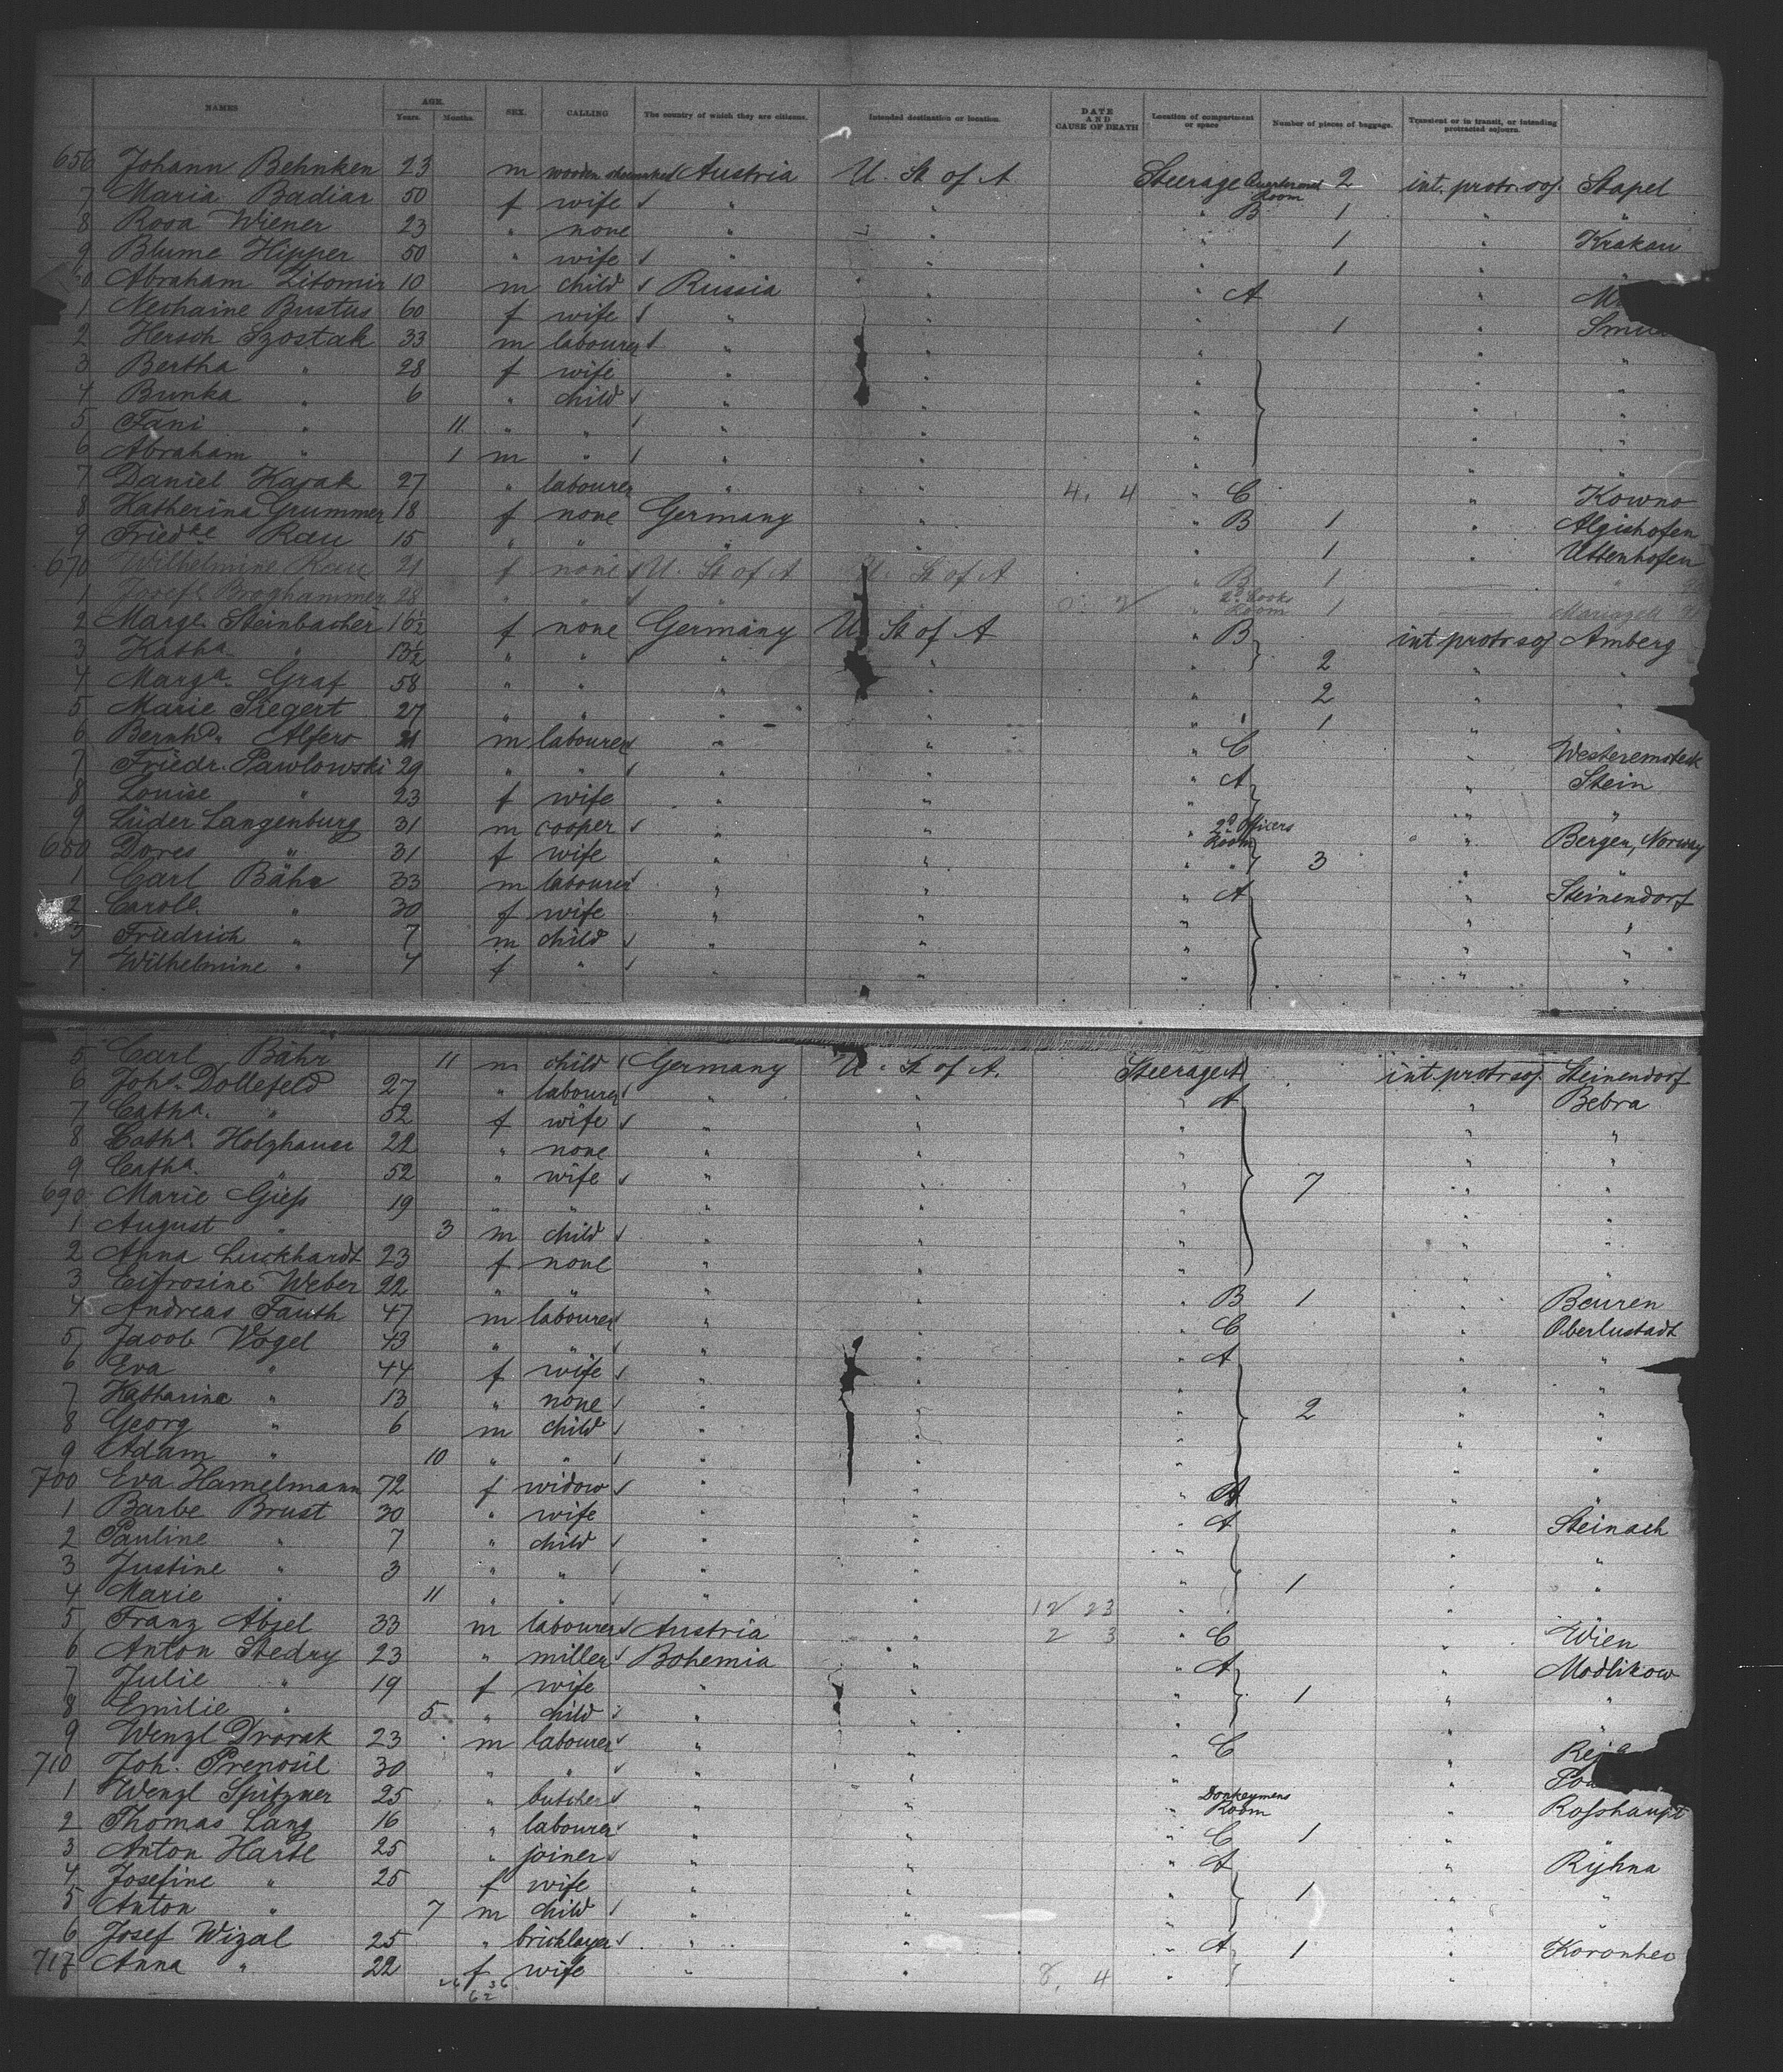 NAMES AGE. Years. Months. SEX. CALLING The country of which they are citizens. Intended destination or location. DATE AND CAUSE OF DEATH Location of compartment or space Number of pieces of baggage. Transient or in transit, or intending protracted sojourn.
656 Johann Behnken 23 m wooden Austria U. St of A Steerage Room 2 int. protr. soj. Stapel
7 Maria Badiar 50 f wife " " " B 1 " "
8 Rosa Wiener 23 " none " " " 1 " Krakau
9 Blume Hipper 50 " wife " " " 1 " "
Abraham Zitomir 10 m child Russia " " A "
1 Nechaine Bustus 60 f wife " " " 1 "
2 Hersch Szostak 33 m labourer " " " " "
3 Bertha " 28 f wife " " " " "
4 Bunka " 6 " child " " " " "
5 Fani " 11 " " " " " " "
6 Abraham " 1 m " " " " " "
7 Daniel Kasak 27 " labourer " " 4. 4 " C " Kowno
8 Katherina Grummer 18 f none Germany " " B 1 " Algishofen
9 Friedke Rau 15 " " " " " 1 " Uttenhofen
670 Wilhelmine Rau 21 f none U. St of A U. St of A " B 1 "
1 Josef. Broghammer 28 " " " " 2d Cooks Room 1 Mariazell
2 Marge. Steinbacher 16½ f none Germany U. St of A " B int. protr. soj. Amberg
3 Katha. " 13½ " " " " " 2 " "
4 Marga. Graf 58 " " " " " 2 " "
5 Marie Siegert 27 " " " " " 1 " "
6 Bernhd. Alfers 21 m labourer " " " C " Westeremstek
7 Friedr. Pawlowski 29 " " " " " A " Stein
8 Louise " 23 f wife " " " " "
9 Lüder Langenburg 31 m cooper " " " 2d Officers Room " Bergen, Norway
680 Dores " 31 f wife " " " " 3 " "
1 Carl Bähr 33 m labourer " " " A " Steinendorf
2 Caroll. " 30 f wife " " " " "
3 Friedrich " 7 m child " " " " "
4 Wilhelmine " 4 f " " " " " "
5 Carl Bähr 11 m child Germany U. St of A. Steerage A int. protr. soj. Steinendorf
6 Johs. Dollefeld 27 " labourer " " " A " Bebra
7 Catha. " 52 f wife " " " " "
8 Catha. Holzhauer 22 " none " " " " "
9 Catha. " 52 " wife " " " 7 " "
690 Marie Gieß 19 " " " " " " "
1 August " 3 m child " " " " "
2 Anna Luckhardt 23 f none " " " " "
3 Eifrosine Weber 22 " " " " " B 1 " Beuren
4 Andreas Fauth 47 m labourer " " " C " Oberlustadt
5 Jacob Vogel 43 " " " " " A " "
6 Eva " 44 f wife " " " " "
7 Katharina " 13 " none " " " 2 " "
8 Georg " 6 m child " " " " "
9 Adam " 10 " " " " " " "
700 Eva Hamelmann 72 f widow " " " A " "
1 Barbe Brust 30 " wife " " " A " Steinach
2 Pauline " 7 " child " " " " "
3 Justine " 3 " " " " " 1 " "
4 Marie " 11 " " " " 12 23 " " "
5 Franz Absel 33 m labourer Austria " 2 3 " C " Wien
6 Anton Stedry 23 " miller Bohemia " " A " Modlikow
7 Julie " 19 f wife " " " 1 " "
8 Emilie " 5 " child " " " " "
9 Wenzl Dvorak 23 m labourer " " " C "
710 Joh. Prenosil 30 " " " " " "
1 Wenzl Spitzner 25 " butcher " " " Donkeymens Room " Roßhaupt
2 Thomas Lang 16 " labourer " " " C 1 " "
3 Anton Hartl 25 " joiner " " " A " Ryhna
4 Josefine " 25 f wife " " " 1 " "
5 Anton " 7 m child " " " " "
6 Josef Wizal 25 " bricklayer " " " A 1 "
717 Anna " 22 f wife " " 8. 4 " "